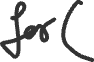 for (